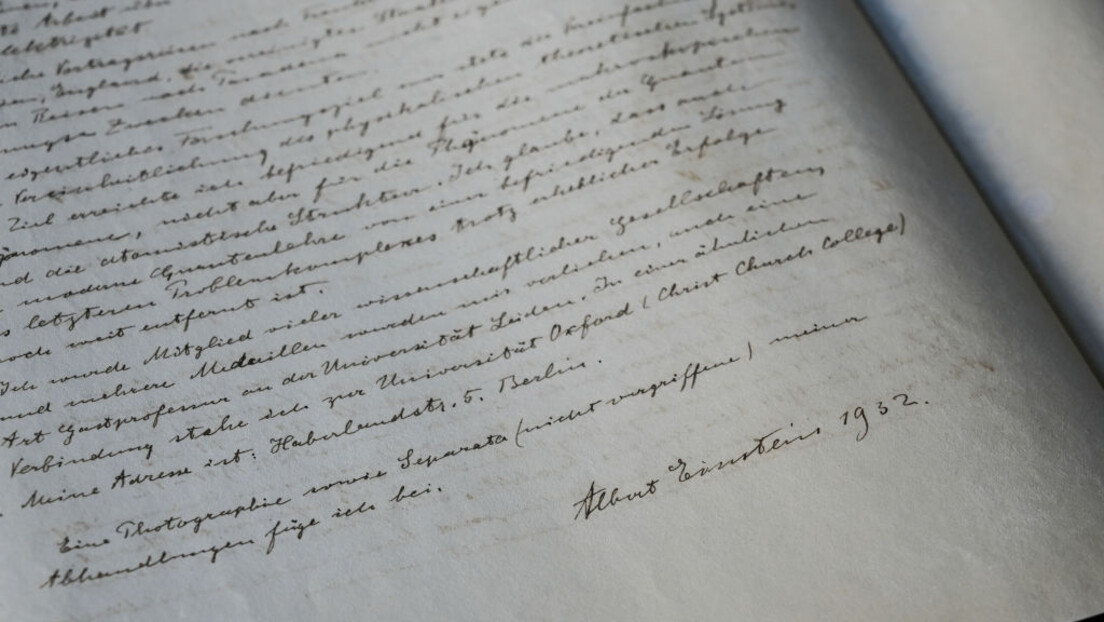 Arbeit
Elektrizität
Vortragsreisen nach
England, die vereinigten Staaten
Reisen nach Kanada nicht
Zwecken dienten.
eigentliches Forschungsziel war stets die
Vereinheitlichung des physikalischen theoretischen Systems
Ziel erreichte ich befriedigend für die makroskopischen
nicht aber für die Phänomene der Quanten
und die atomistische Struktur. Ich glaube, dass auch
moderne Quantenlehre von einer befriedigenden Lösung
letzteren Problemkomplexes trotz erheblicher Erfolge
noch weit entfernt ist.
Ich wurde Mitglied vieler wissenschaftlicher Gesellschaften,
und mehrere Medaillen wurden mir verliehen, auch eine
Art Gastprofessur an der Universität Leiden. In einer ähnlichen
Verbindung stehe ich zur Universität Oxford (Christ Church College)
Meine Adresse ist: Haberlandstr. 5. Berlin.
Eine Photographie sowie Separata (nicht vergriffene) meiner
Abhandlungen füge ich bei.
Albert Einstein 1932.